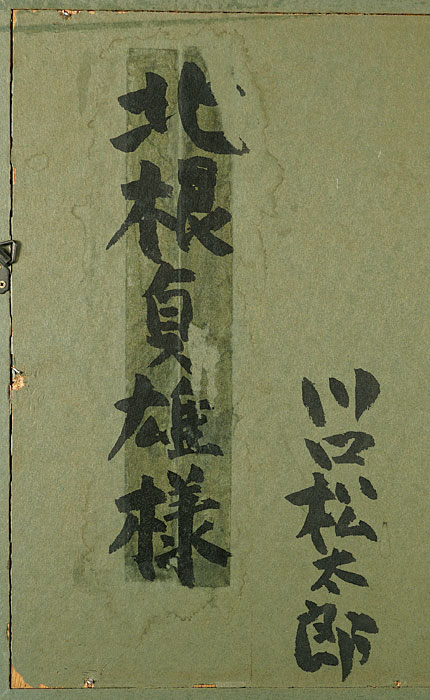 川口松太郎
北根貞雄様